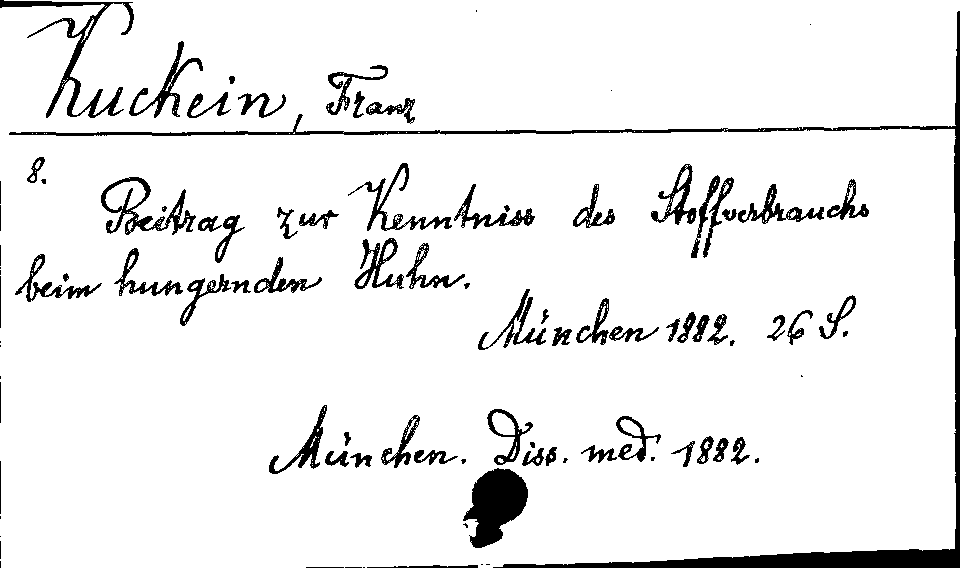 Kuckein, Franz
8.
Beitrag zur Kenntniss des Stoffverbrauchs
beim hungernden Huhn.
München 1882. 26 S.
München. Diss. med. 1882.